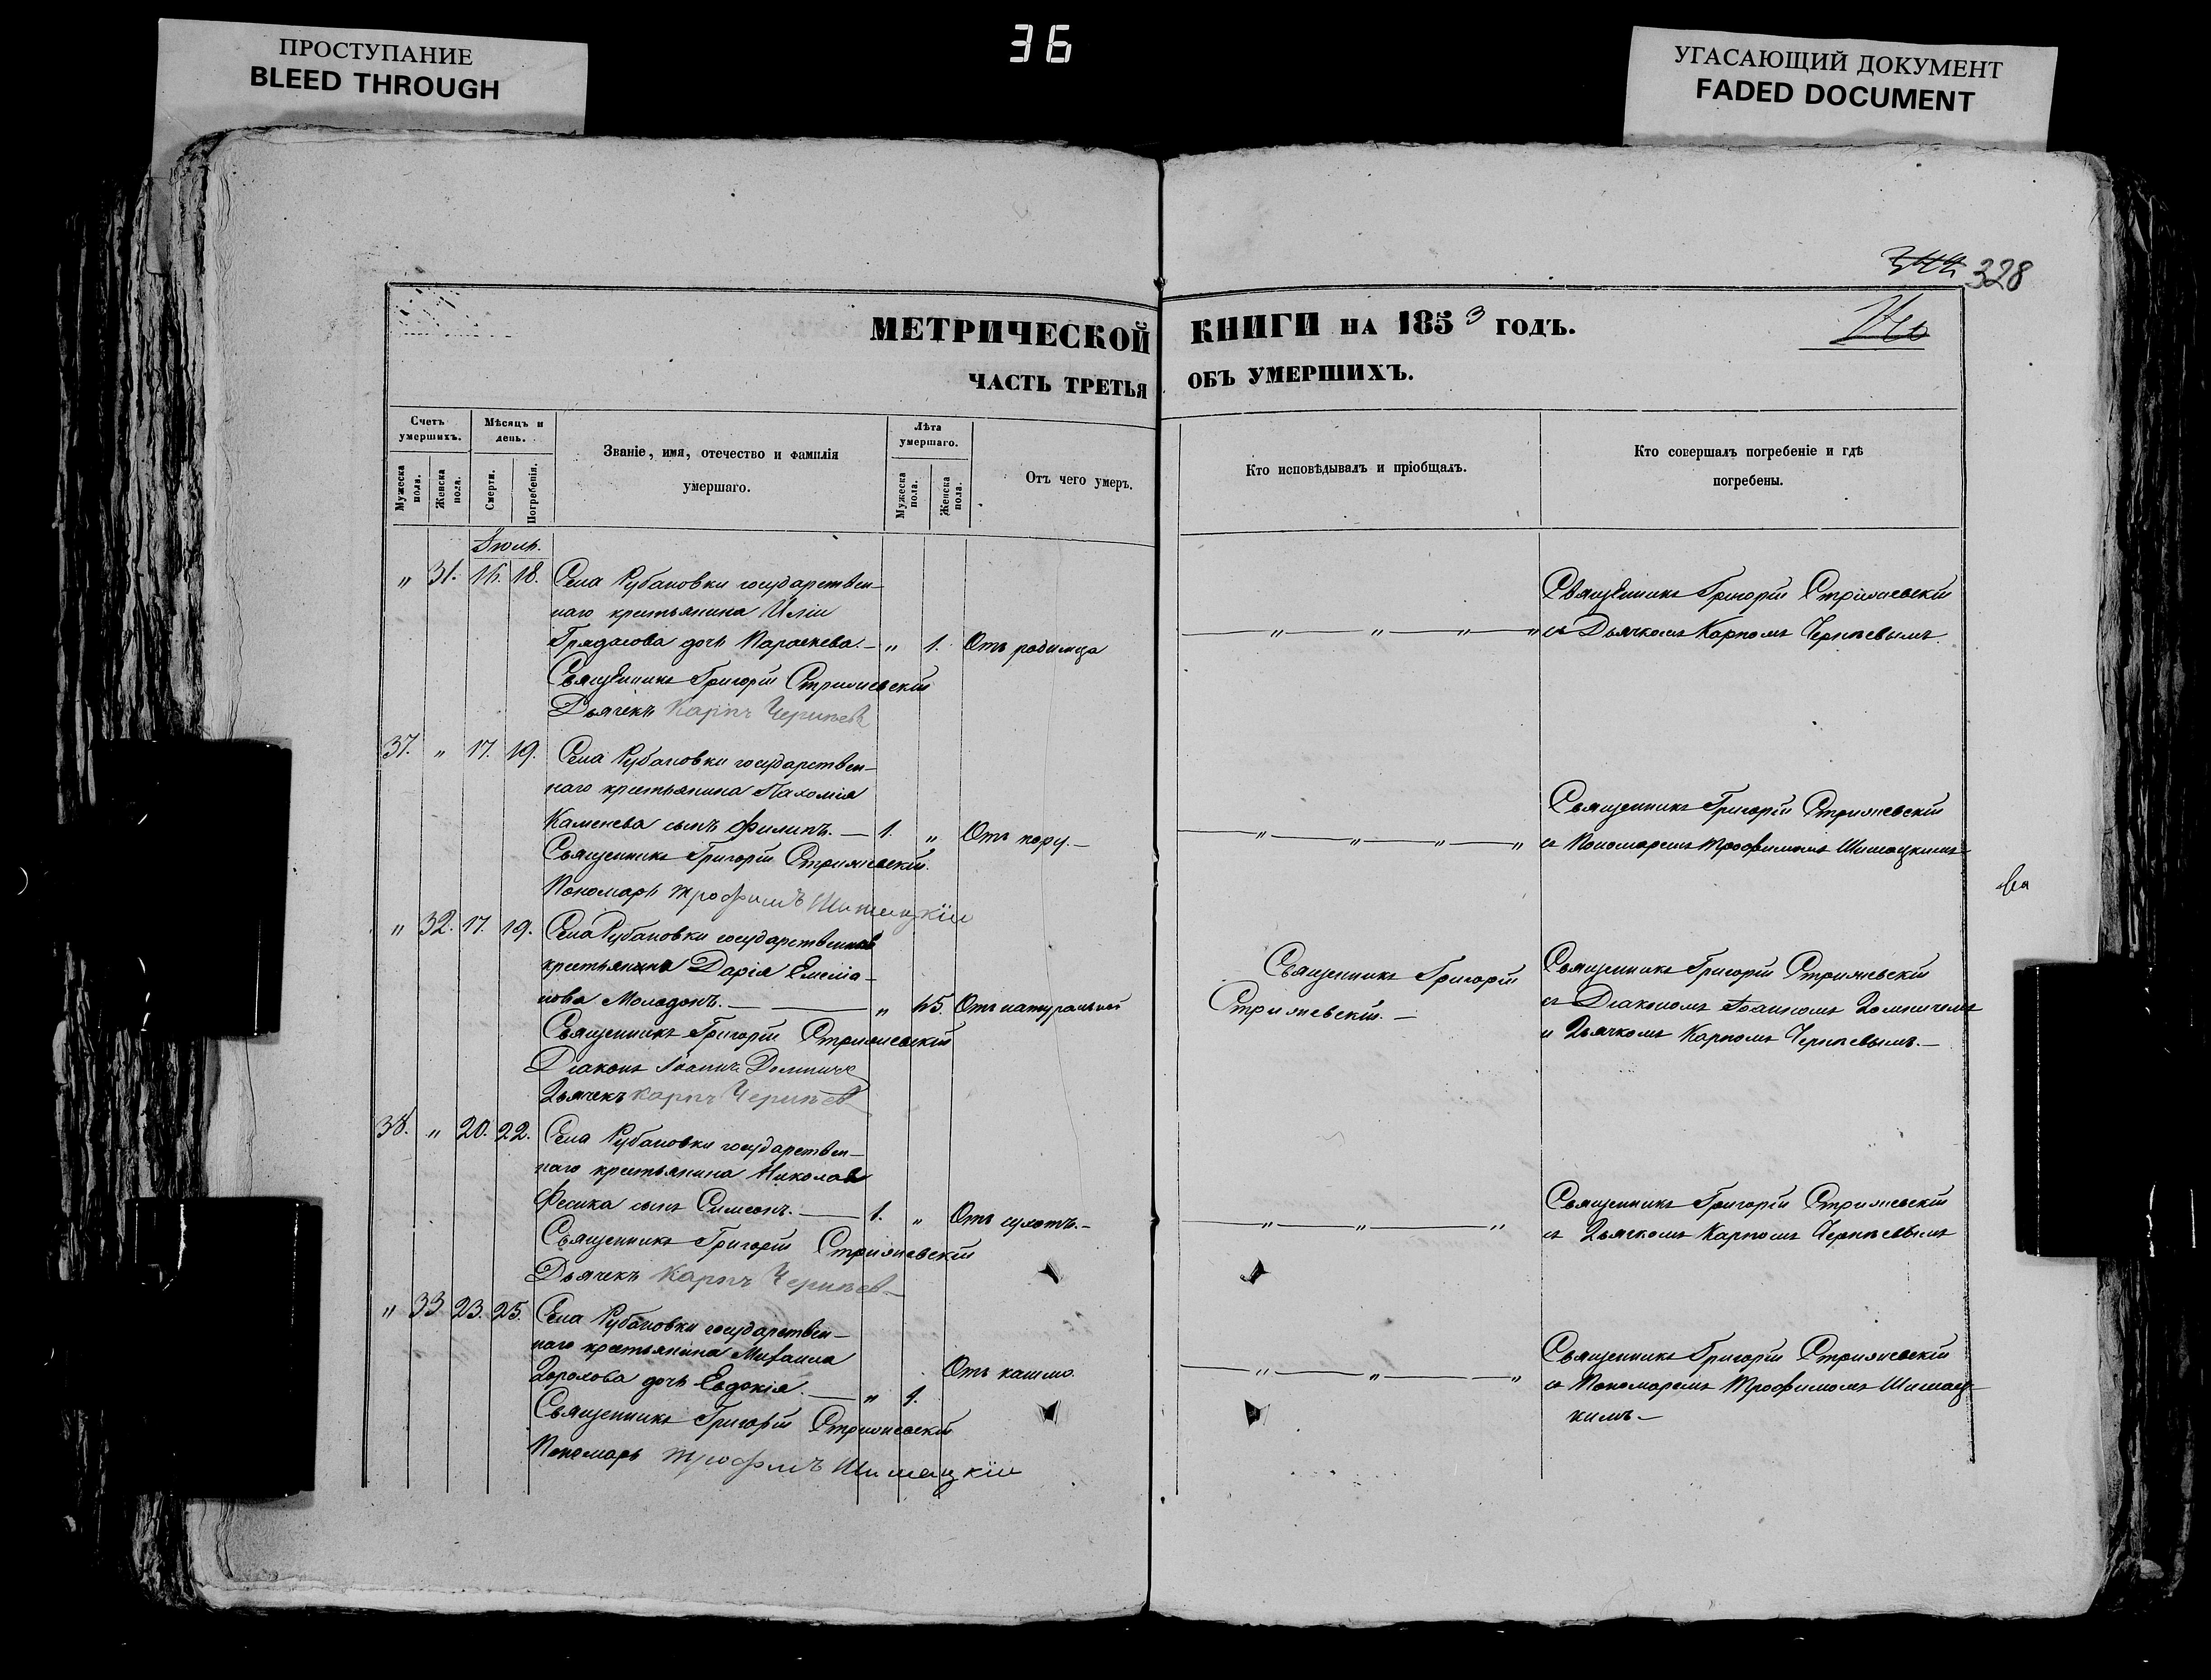 36
ПРОСТУПАНИЕ
BLEED THROUGH
УГАСАЮЩИЙ ДОКУМЕНТ
FADED DOCUMENT
328
МЕТРИЧЕСКОЙ КНИГИ НА 1853 ГОДЪ.
ЧАСТЬ ТРЕТЬЯ ОБЪ УМЕРШИХЪ.
Счетъ умершихъ.
Мужеска пола.
Женска пола.
Мѣсяцъ и день.
Смерти.
Погребенія.
Званіе, имя, отечество и фамилія
умершаго.
Лѣта умершаго.
Мужеска пола.
Женска пола.
Отъ чего умеръ.
Кто исповѣдывалъ и пріобщалъ.
Кто совершалъ погребеніе и гдѣ
погребены.
Іюль.
„ 31. 16. 18. Села Рубановки государствен-
наго крестьянина Иліи
дочь Параскева. — „ 1. Отъ родимца
Священникъ Григорій Стрижевскій
Дьячекъ Карпъ Черипев
Священникъ Григорій Стрижевскій
съ Дьячкомъ Карпомъ Черипевымъ.
37. „ 17. 19. Села Рубановки государствен-
наго крестьянина Пахомія
Каменева сынъ Филипъ. — 1. „ Отъ пору. —
Священникъ Григорій Стрижевскій.
Пономарь Трофимъ Шишацкій
Священникъ Григорій Стрижевскій
съ Пономаремъ Трофимомъ Шишацкимъ
„ 32. 17. 19. Села Рубановки государственная
крестьянка Дарія Емелья-
нова Молодонъ. — „ 45. Отъ натуральной
Священникъ Григорій Стрижевскій
Діаконъ Іоаннъ
Дьячекъ Карпъ Черипев
Священникъ Григорій
Стрижевскій. —
Священникъ Григорій Стрижевскій
съ Діакономъ Іоанномъ
и Дьячкомъ Карпомъ Черипевымъ. —
38. „ 20. 22. Села Рубановки государствен-
наго крестьянина Николая
Фесика сынъ Симеонъ. — 1. „ Отъ сухотъ. —
Священникъ Григорій Стрижевскій
Дьячекъ Карпъ Черипев
Священникъ Григорій Стрижевскій
съ Дьячкомъ Карпомъ Черипевымъ
„ 33 23. 25. Села Рубановки государствен-
наго крестьянина Михаила
Дорохова дочь Евдокія. — „ 1. Отъ кашлю
Священникъ Григорій Стрижевскій
Пономарь Трофимъ Шишацкій
Священникъ Григорій Стрижевскій
съ Пономаремъ Трофимомъ Шишац-
кимъ —